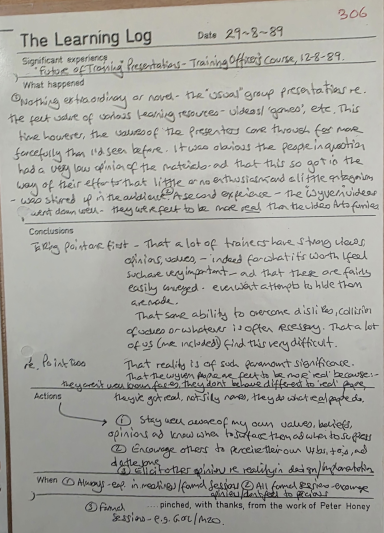 306
The Learning Log Date 29-8-89
Significant experience
"Future of Training" Presentations - Training Officers' Course, 12-8-89.
What happened
① Nothing extraordinary or novel - the "usual" group presentations re.
the felt value of various learning resources - videos/'games', etc. This
time however, the values of the presenters came through far more
forcefully than I'd seen before. It was obvious the people in question
had a very low opinion of the materials and that this so got in the
way of their efforts that little or no enthusiasm and a little antagonism
- was stirred up in the audience. ② A second experience - the Wyvern videos
went down well - they were felt to be more real than the video Arts funnies
Conclusions
Taking point one first - That a lot of trainers have strong views,
opinions, values, - indeed for what it's worth I feel
such are very important - and that these are fairly
easily conveyed - even when attempts to hide them
are made.
That some ability to overcome dislikes, collision
of values or whatever is often necessary. That a lot
of us (me included) find this very difficult.
re. Point Two That reality is of such paramount significance.
That the Wyvern people are felt to be more 'real' because:-
they aren't well known faces, they don't behave different to 'real' people,
they've got real, not silly names, they do what real people do.
Actions
① Stay well aware of my own values, beliefs,
opinions and know when to surface them and when to suppress
② Encourage others to perceive their own
do the same
③ Elicit other opinion re reality in design/
When ① Always - esp. in meetings/formal sessions ② All formal sessions - encourage
③ Formal ....pinched, with thanks, from the work of Peter Honey
sessions - e.g.